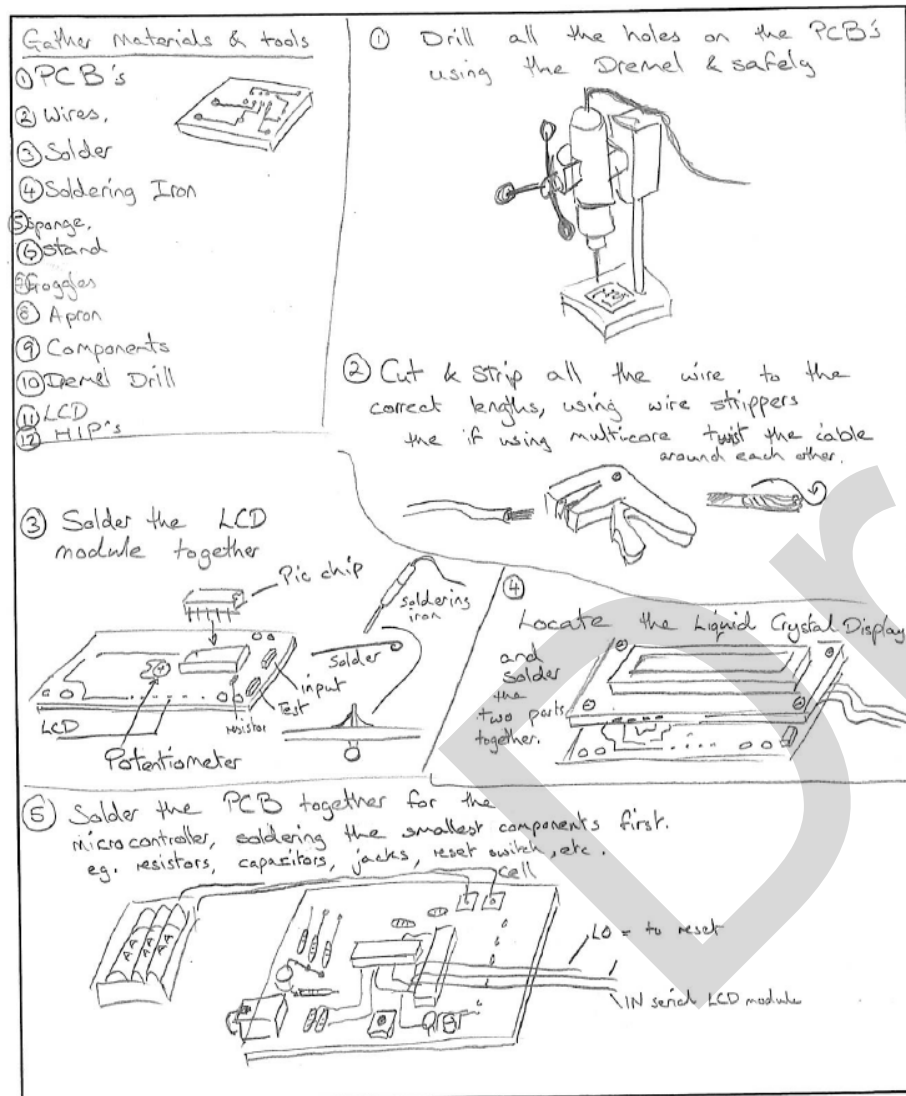 Gather Materials & tools
① PCB's
② Wires,
③ Solder
④ Soldering Iron
⑤ Sponge,
⑥ Stand
⑦ Goggles
⑧ Apron
⑨ Components
⑩ Dremel Drill
⑪ LCD
⑫ HIP's
① Drill all the holes on the PCB's
using the Dremel & safely
② Cut & Strip all the wire to the
correct lengths, using wire strippers
the if using multicore twist the cable
around each other.
③ Solder the LCD
module together
Pic chip
soldering
iron
solder
input
Test
resistor
LCD
Potentiometer
④
Locate the Liquid Crystal Display
and
solder
the
two parts
together.
⑤ Solder the PCB together for the
microcontroller, soldering the smallest components first.
eg. resistors, capacitors, jacks, reset switch, etc.
cell
AA AA
LO = to reset
IN serial LCD module
Dr